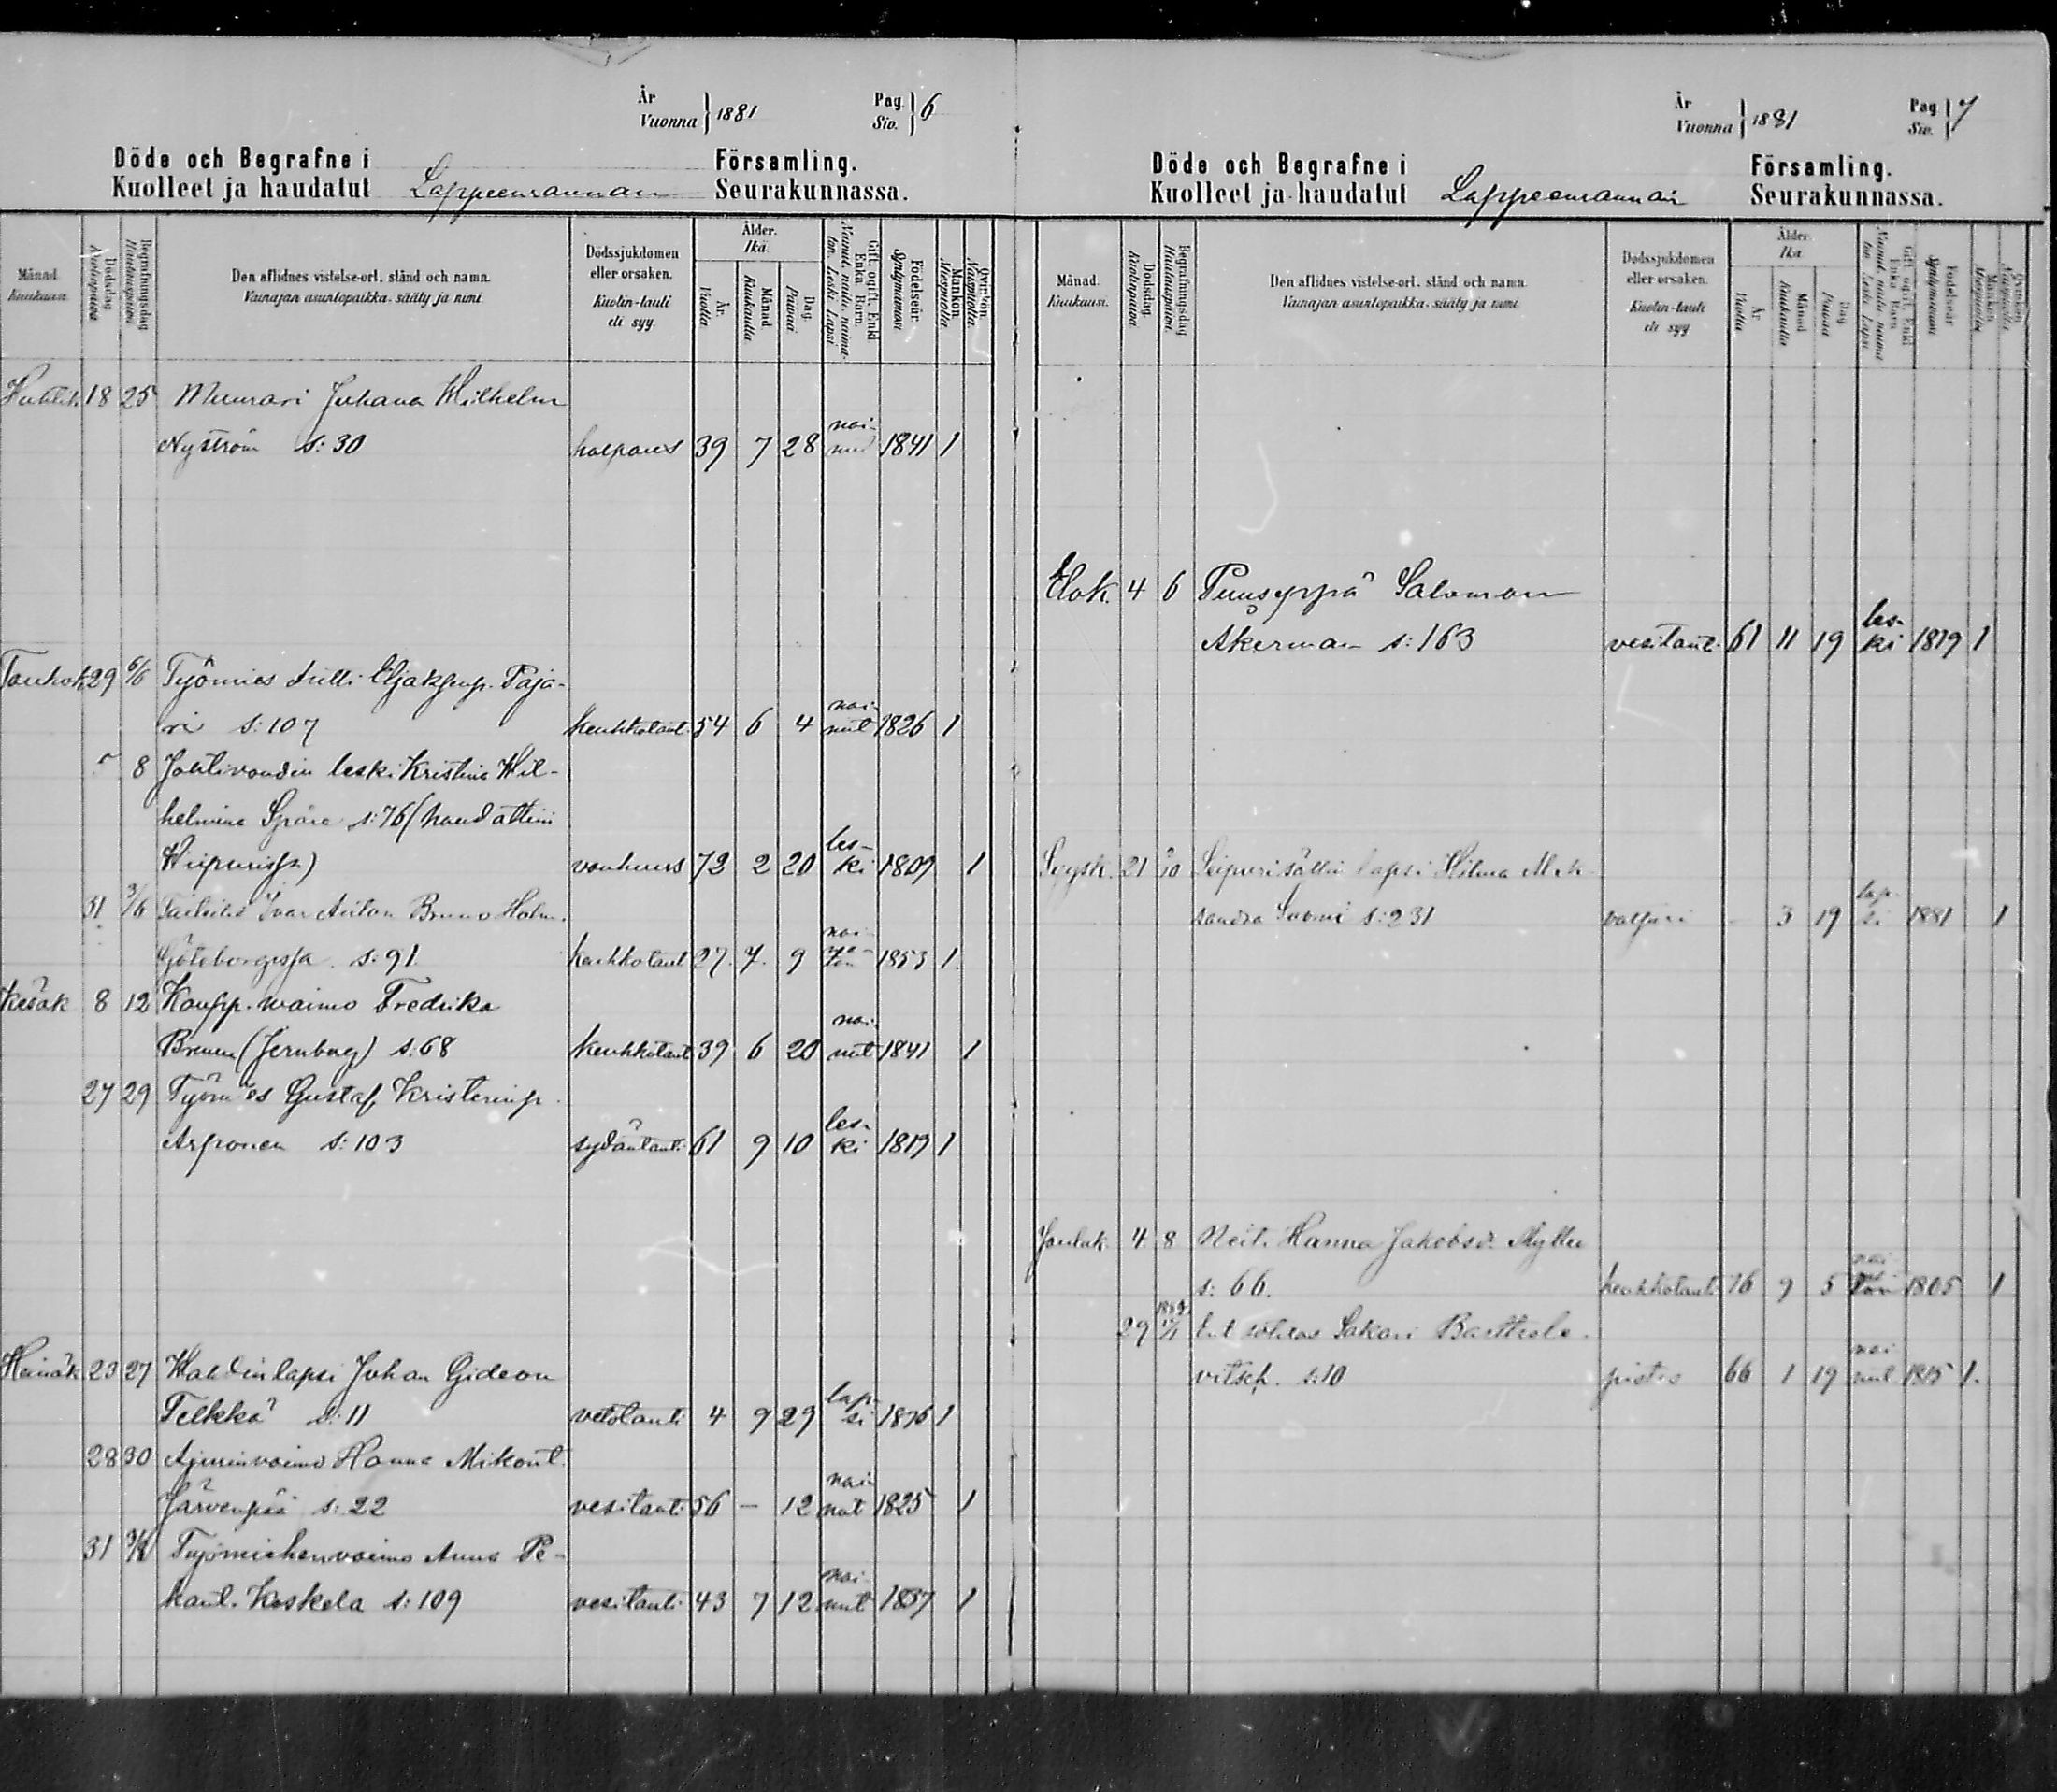 År
Vuonna } 1881
Pag.
Siv. } 6
Döde och Begrafne i Församling.
Kuolleet ja haudatut Lappeenrannan Seurakunnassa.
Månad. Kuukausi.
Dödsdag Kuolinpäivä
Begrafningsdag Hautauspäivä
Den aflidnes vistelse-ort. stånd och namn.
Vainajan asuntopaikka. sääty ja nimi.
Dödssjukdomen eller orsaken.
Kuolin-tauti eli syy.
Ålder. Ikä.
År. Vuotta
Månad. Kuukautta
Dag. Päivää
Gift, ogift. Enkl. Enka. Barn.
Nainut, naitu, naimaton. Leski. Lapsi.
Födelseår. Syntymävuosi
Mankön. Miespuolia
Qvinkön. Naispuolia
Huhtik. 18 25 Muurari Juhana Wilhelm
Nyström s: 30 halpaus 39 7 28 nai-nut 1841 1
Toukok. 29 6/6 Työmies Antti Eljakimp. Paja-
ri s: 107 keuhkotaut. 54 6 4 nai-nut 1826 1
5 8 Jahtivoudin leski Kristina Wil-
helmina Spåre s: 76 (haudattiin
Wiipurissa) vanhuus 72 2 20 les-ki 1809 1
31 3/6 Ivar Anton Bruno Holm.
Göteborgissa. s: 91. keuhkotaut 27. 7. 9 nai-ma-ton 1853 1.
Kesäk 8 12 Kaupp. waimo Fredrika
(Jernberg) s: 68 keuhkotaut 39 6 20 nai-nut 1841 1
27 29 Työmies Gustaf Kristerinp.
Asponen s: 103 sydäntaut. 61 9 10 les-ki 1819 1
Heinäk. 23 27 Wahdin lapsi Johan Gideon
Telkkä s: 11 vetotauti 4 9 29 lap-si 1876 1
28 30 Ajurin vaimo Hanna Mikont.
Järvenpää s: 22 vesitauti 56 — 12 nai-nut 1825 1
31 3/8 Työmiehen vaimo Anna Pe-
kant. Koskela s: 109 vesitauti 43 7 12 nai-nut 1837 1
År
Vuonna } 1881
Pag.
Siv. } 7
Döde och Begrafne i Församling.
Kuolleet ja haudatut Lappeenrannan Seurakunnassa.
Månad. Kuukausi.
Dödsdag. Kuolinpäivä
Begrafningsdag. Hautauspäivä.
Den aflidnes vistelse-ort. stånd och namn.
Vainajan asuntopaikka. sääty ja nimi.
Dödssjukdomen eller orsaken.
Kuolin-tauti eli syy.
Ålder. Ikä.
År. Vuotta
Månad. Kuukautta
Dag. Päivää
Gift, ogift. Enkl. Enka. Barn.
Nainut, naitu, naimaton. Leski. Lapsi.
Födelseår. Syntymävuosi
Mankön. Miespuolia
Qvinkön. Naispuolia
Elok. 4 6 Puuseppä Salomon
Akerman s: 163 vesitaut. 61 11 19 les-ki 1819 1
Syysk. 21 2/10 Leipurisällin lapsi Hilma Alek-
sandra Suomi s: 231 — 3 19 lap-si 1881 1
Jouluk. 4 8 Neit. Hanna Jakobsd. Myller
s: 66. keuhkotaut 76 9 5 nai-ma-ton 1805 1
29 1882 Ent sotilas Sakari Barthole-
vitsch. s: 10 pistos 66 1 19 nai-nut 1815 1.